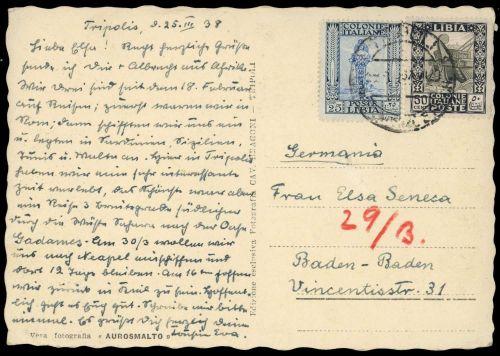 Tripolis, d. 25. III 38
Liebe Elsa! Recht herzliche Grüße
sende ich Dir + Albrecht aus Afrika.
Wir drei sind seit dem 18. Februar
auf Reisen; zuerst waren wir in
Rom; dann schifften wir uns ein
u. legten in Sardinien, Sizilien,
Tunis u. Malta an. Hier in Tripolis
haben wir eine sehr interessante
Zeit verlebt. Das Schönste war aber
eine Reise 3 Breitegrade südlicher
durch die Wüste Sahara nach der Oase
Gadames. Am 30/3 wollen wir
uns nach Neapel einschiffen und
dort 12 Tage bleiben. Am 16ten hoffen
wir zurück in Kiel zu sein. Hoffent-
lich geht es Euch gut. Schreibe mir bitte
einmal. Es grüßt Dich herzlich Deine
Cousine Eva.
Vera fotografia « AUROSMALTO »
Edizione esclusiva Fotografia CAV. - TRIPOLI
COLONIE
ITALIANE
25
POSTE
LIBIA
LIBIA
50
COLONIE
ITALIANE
POSTE
Germania
Frau Elsa Seneca
29/B.
Baden-Baden
Vincentisstr. 31